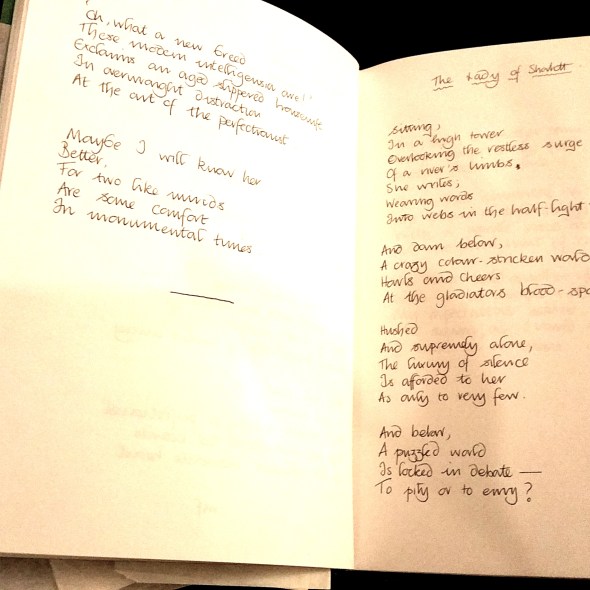 Oh, what a new breed
These modern intelligensia are!'
Exclaims an aged slippered housewife
In overwrought distraction
At the art of the perfectionist
Maybe I will know her
Better,
For two like minds
Are some comfort
In monumental times
The Lady of Shalott
Sitting,
In a high tower
Overlooking the restless surge
Of a river's limbs.
She writes,
Weaving words
Into webs in the half-light
And down below,
A crazy colour-stricken world
Howls and cheers
At the gladiators blood-spo
Hushed
And supremely alone,
The luxury of silence
Is afforded to her
As only to very few.
And below,
A puzzled world
Is locked in debate —
To pity or to envy?